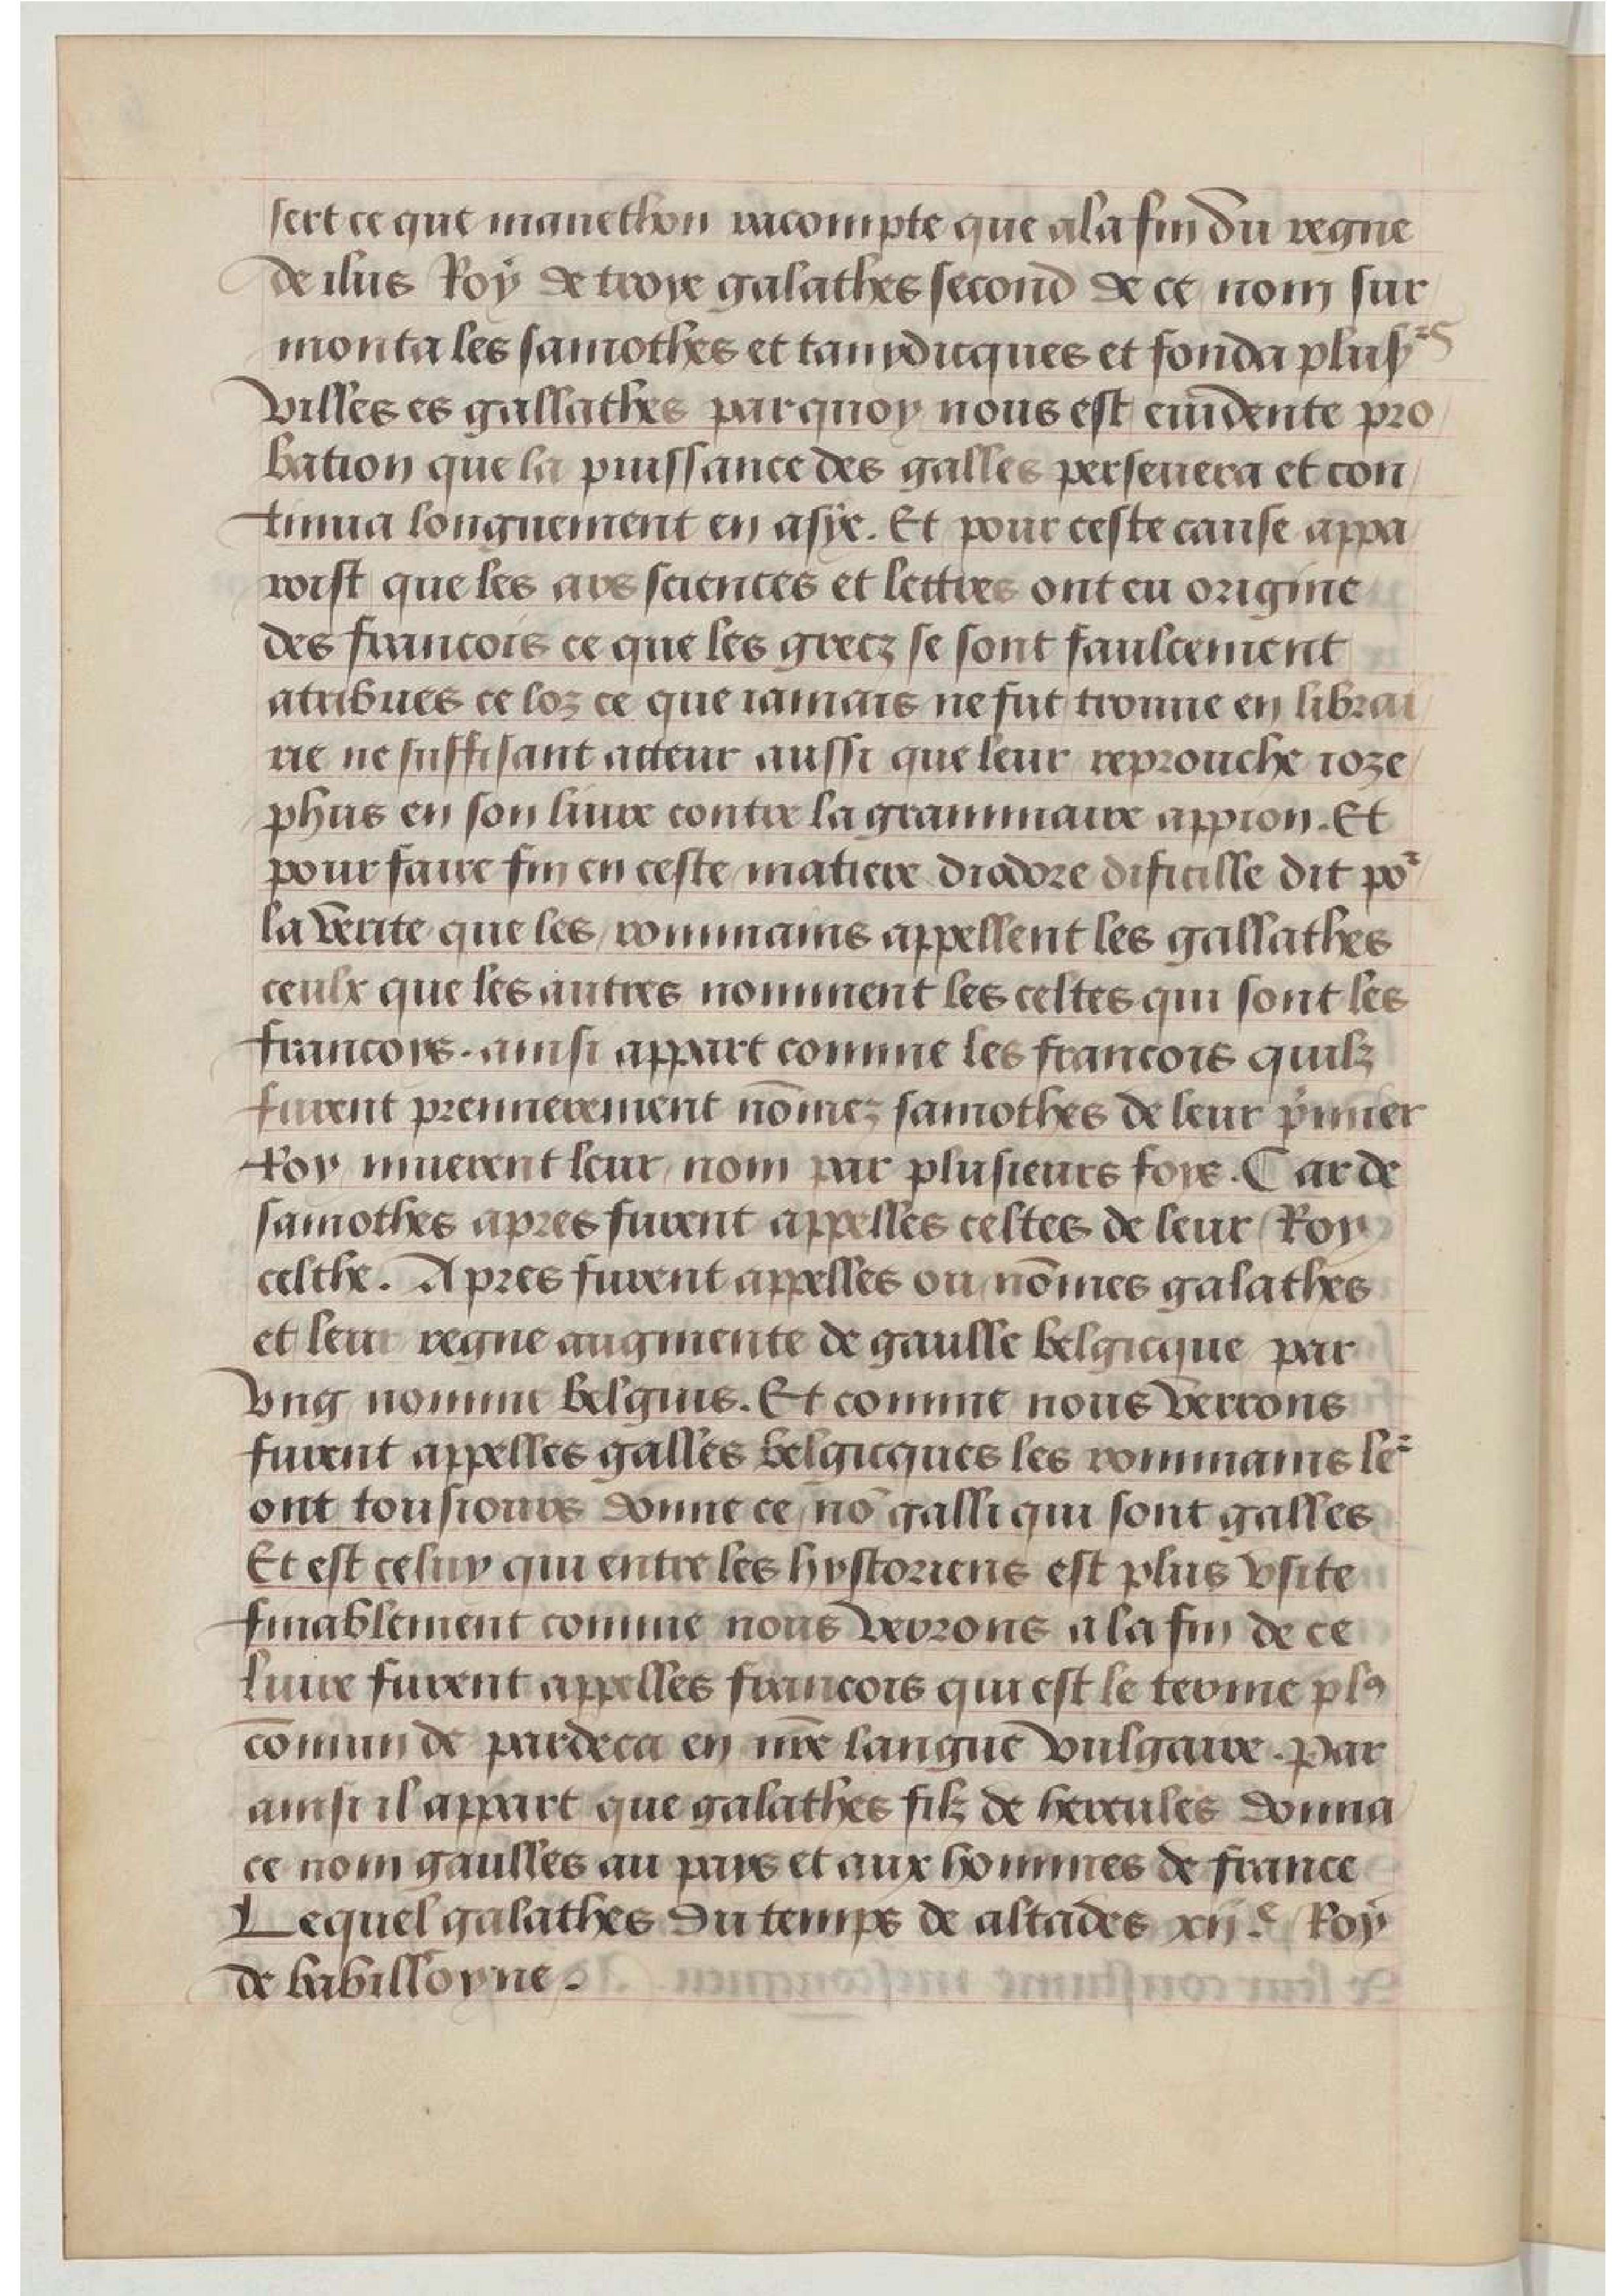 sert ce que manethon racompte que ala fin du regne
de ilus Roÿ de troye galathes second de ce nom sur
monta les samothes et taurdicques et fonda plusrs
villes es gallathes par quoy nous est euidente pro
bation que la puissance des galles perseuera et con
tinua longuement en asÿe. Et pour ceste cause appa
roist que les ars sciences et lettres ont eu origine
des francois ce que les grecz se sont faulcement
atribues ce loz ce que iamais ne fut trouue en librai
rie ne suffisant acteur aussi que leur reprouche ioze
phus en son liure contre la grammaire appion. Et
pour faire fin en ceste matiere diodore dificille dit por
la verite que les rommains appellent les gallathes
ceulx que les autres nomment les celtes qui sont les
francoys. ainsi appart comme les francois quilz
furent premierement nōmez samothes de leur pimier
Roy muerent leur nom par plusieurs foys. Car de
samothes apres furent appelles celtes de leur Roy
celthe. Apres furent appelles ou nōmes galathes
et leur regne augmente de gaulle belgicque par
vng nomme belgius. Et comme nous verrons
furent appelles galles belgicques les rommains ler
ont tousiours donne ce nō galli qui sont galles
Et est celuy qui entre les hystoriens est plus vsite
finablement comme nous verrons a la fin de ce
liure furent appelles francois qui est le terme plꝰ
cōmun de pardeca en nr̄e langue vulgaire. par
ainsi il appart que galathes filz de hercules donna
ce nom gaulles au pays et aux hommes de france
Lequel galathes du temps de altades xij.e Roÿ
de babilloyne.